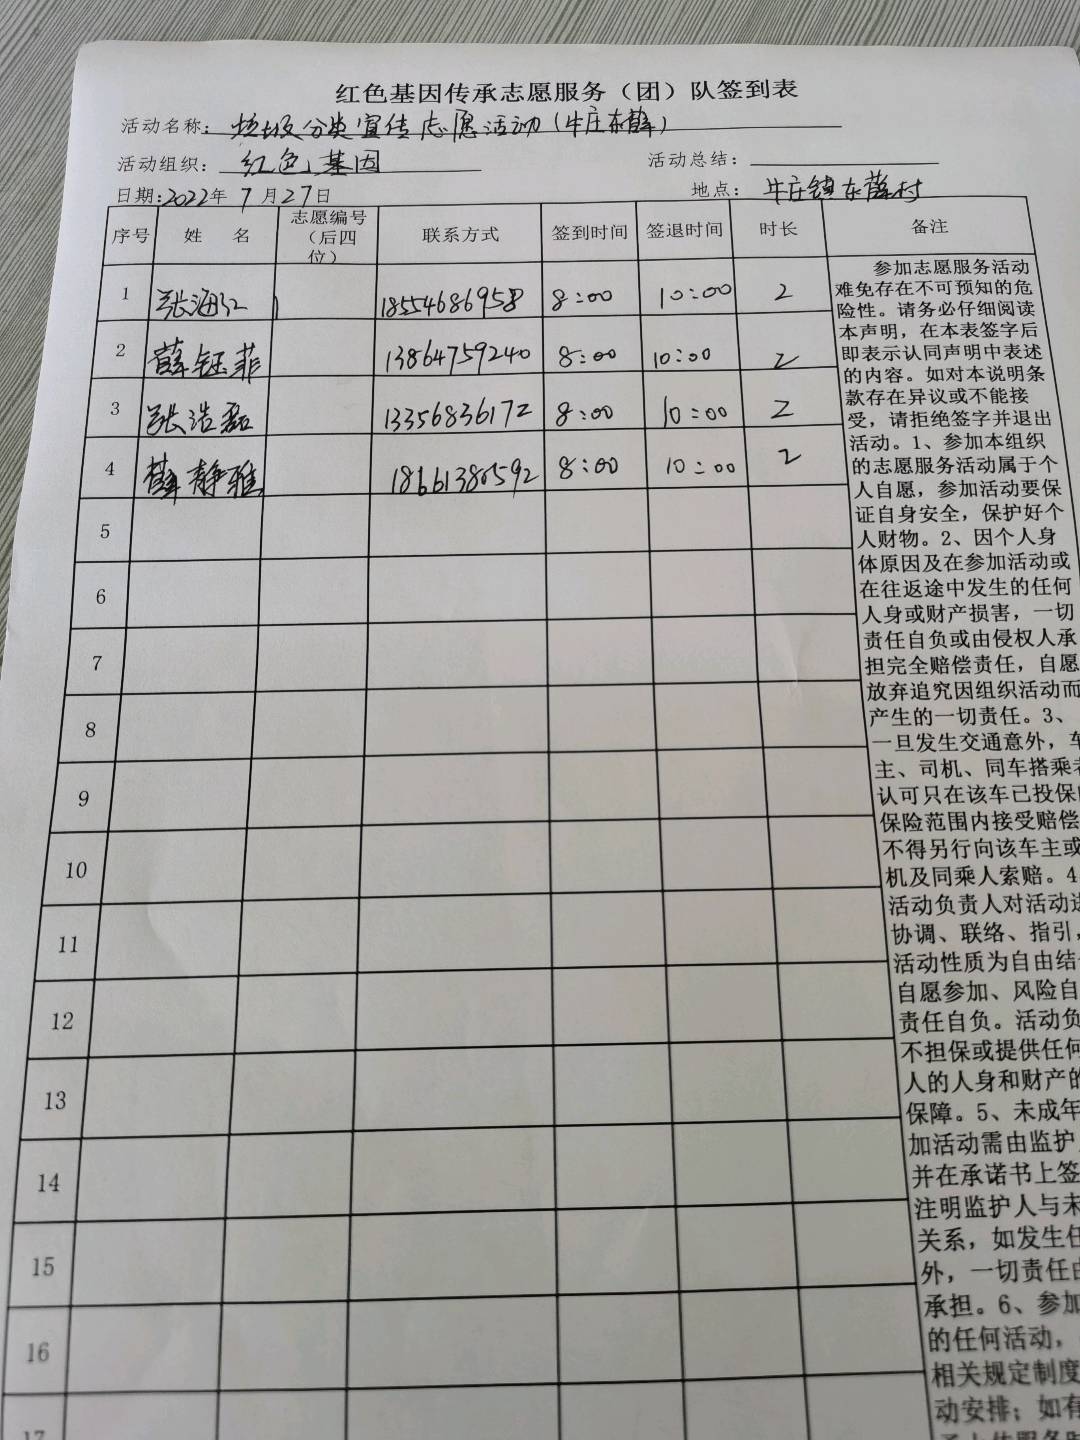 红色基因传承志愿服务（团）队签到表
活动名称：垃圾分类宣传志愿活动(牛庄东薛)
活动组织：红色基因 活动总结：
日期:2022年7月27日 地点：牛庄镇东薛村
序号 姓 名 志愿编号（后四位） 联系方式 签到时间 签退时间 时长 备注
1 张海红 18554686958 8:00 10:00 2
2 薛钰菲 13864759240 8:00 10:00 2
3 张浩磊 13356836172 8:00 10:00 2
4 薛静雅 18661380592 8:00 10:00 2
5
6
7
8
9
10
11
12
13
14
15
16
17
参加志愿服务活动
难免存在不可预知的危
险性。请务必仔细阅读
本声明，在本表签字后
即表示认同声明中表述
的内容。如对本说明条
款存在异议或不能接
受，请拒绝签字并退出
活动。1、参加本组织
的志愿服务活动属于个
人自愿，参加活动要保
证自身安全，保护好个
人财物。2、因个人身
体原因及在参加活动或
在往返途中发生的任何
人身或财产损害，一切
责任自负或由侵权人承
担完全赔偿责任，自愿
放弃追究因组织活动而
产生的一切责任。3、
一旦发生交通意外，车
主、司机、同车搭乘者
认可只在该车已投保的
保险范围内接受赔偿
不得另行向该车主或
机及同乘人索赔。4
活动负责人对活动进
协调、联络、指引，
活动性质为自由结
自愿参加、风险自
责任自负。活动负
不担保或提供任何
人的人身和财产的
保障。5、未成年
加活动需由监护
并在承诺书上签
注明监护人与未
关系，如发生任
外，一切责任由
承担。6、参加
的任何活动，
相关规定制度
动安排；如有